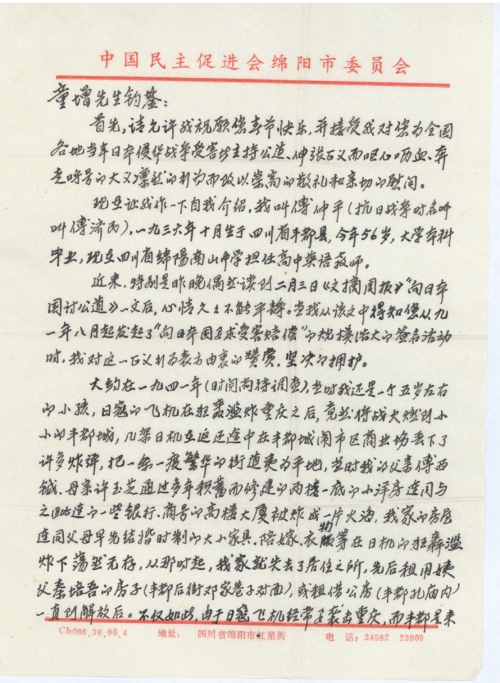 中国民主促进会绵阳市委员会
童增先生钧鉴：
首先，请允许我祝愿您春节快乐，并接受我对您为全国
各地当年日本侵华战争受害者主持公道、伸张正义而呕心呖血、奔
走呼号的大义凛然的行为而致以崇高的敬礼和亲切的慰问。
现在让我作一下自我介绍，我叫傅仲平（抗日战争时名叫
叫傅济丙），一九三六年十月生于四川省丰都县，今年56岁，大学本科
毕业，现在四川省绵阳南山中学担任高中英语教师。
近来，特别是昨晚偶然读到二月三日《文摘周报》“向日本
国讨公道》一文后，心情久久不能平静。当我从该文中得知您从九
一年八月起发起了“向日本国要求受害赔偿”的规模浩大的签名活动
时，我对这一正义行为表示由衷的赞赏，坚决的拥护。
大约在一九四一年（时间尚待调查），当时我还是一个五岁左右
的小孩，日寇的飞机在狂轰滥炸重庆之后，竟然将战火燃到小
小的丰都城，几架日机在返还途中在丰都城闹市区商业场丢下了
许多炸弹，把一条一度繁华的街道夷为平地，当时我的父亲傅西
铖、母亲许玉芝通过多年积蓄而修建的两楼一底的小洋房连同与
之毗连的一些银行、商号的高楼大厦被炸成一片火海，我家的房屋
连同父母早先结婚时制的大小家具、陪嫁、衣物等在日机的狂轰滥
炸下荡然无存，从那时起，我家就失去了居住之所，先后租用姨
父秦培吾的房子（丰都后街邓家巷子对面），或租借公房（丰都孔庙内）
一直到解放后。不仅如此，由于日寇飞机经常去袭击重庆，而丰都是来
Ch086.36.90.4 地址： 四川省绵阳市红星街 电话：24582 23909